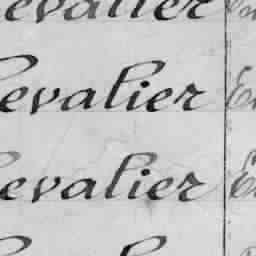 evalier
evalier E
evalier E